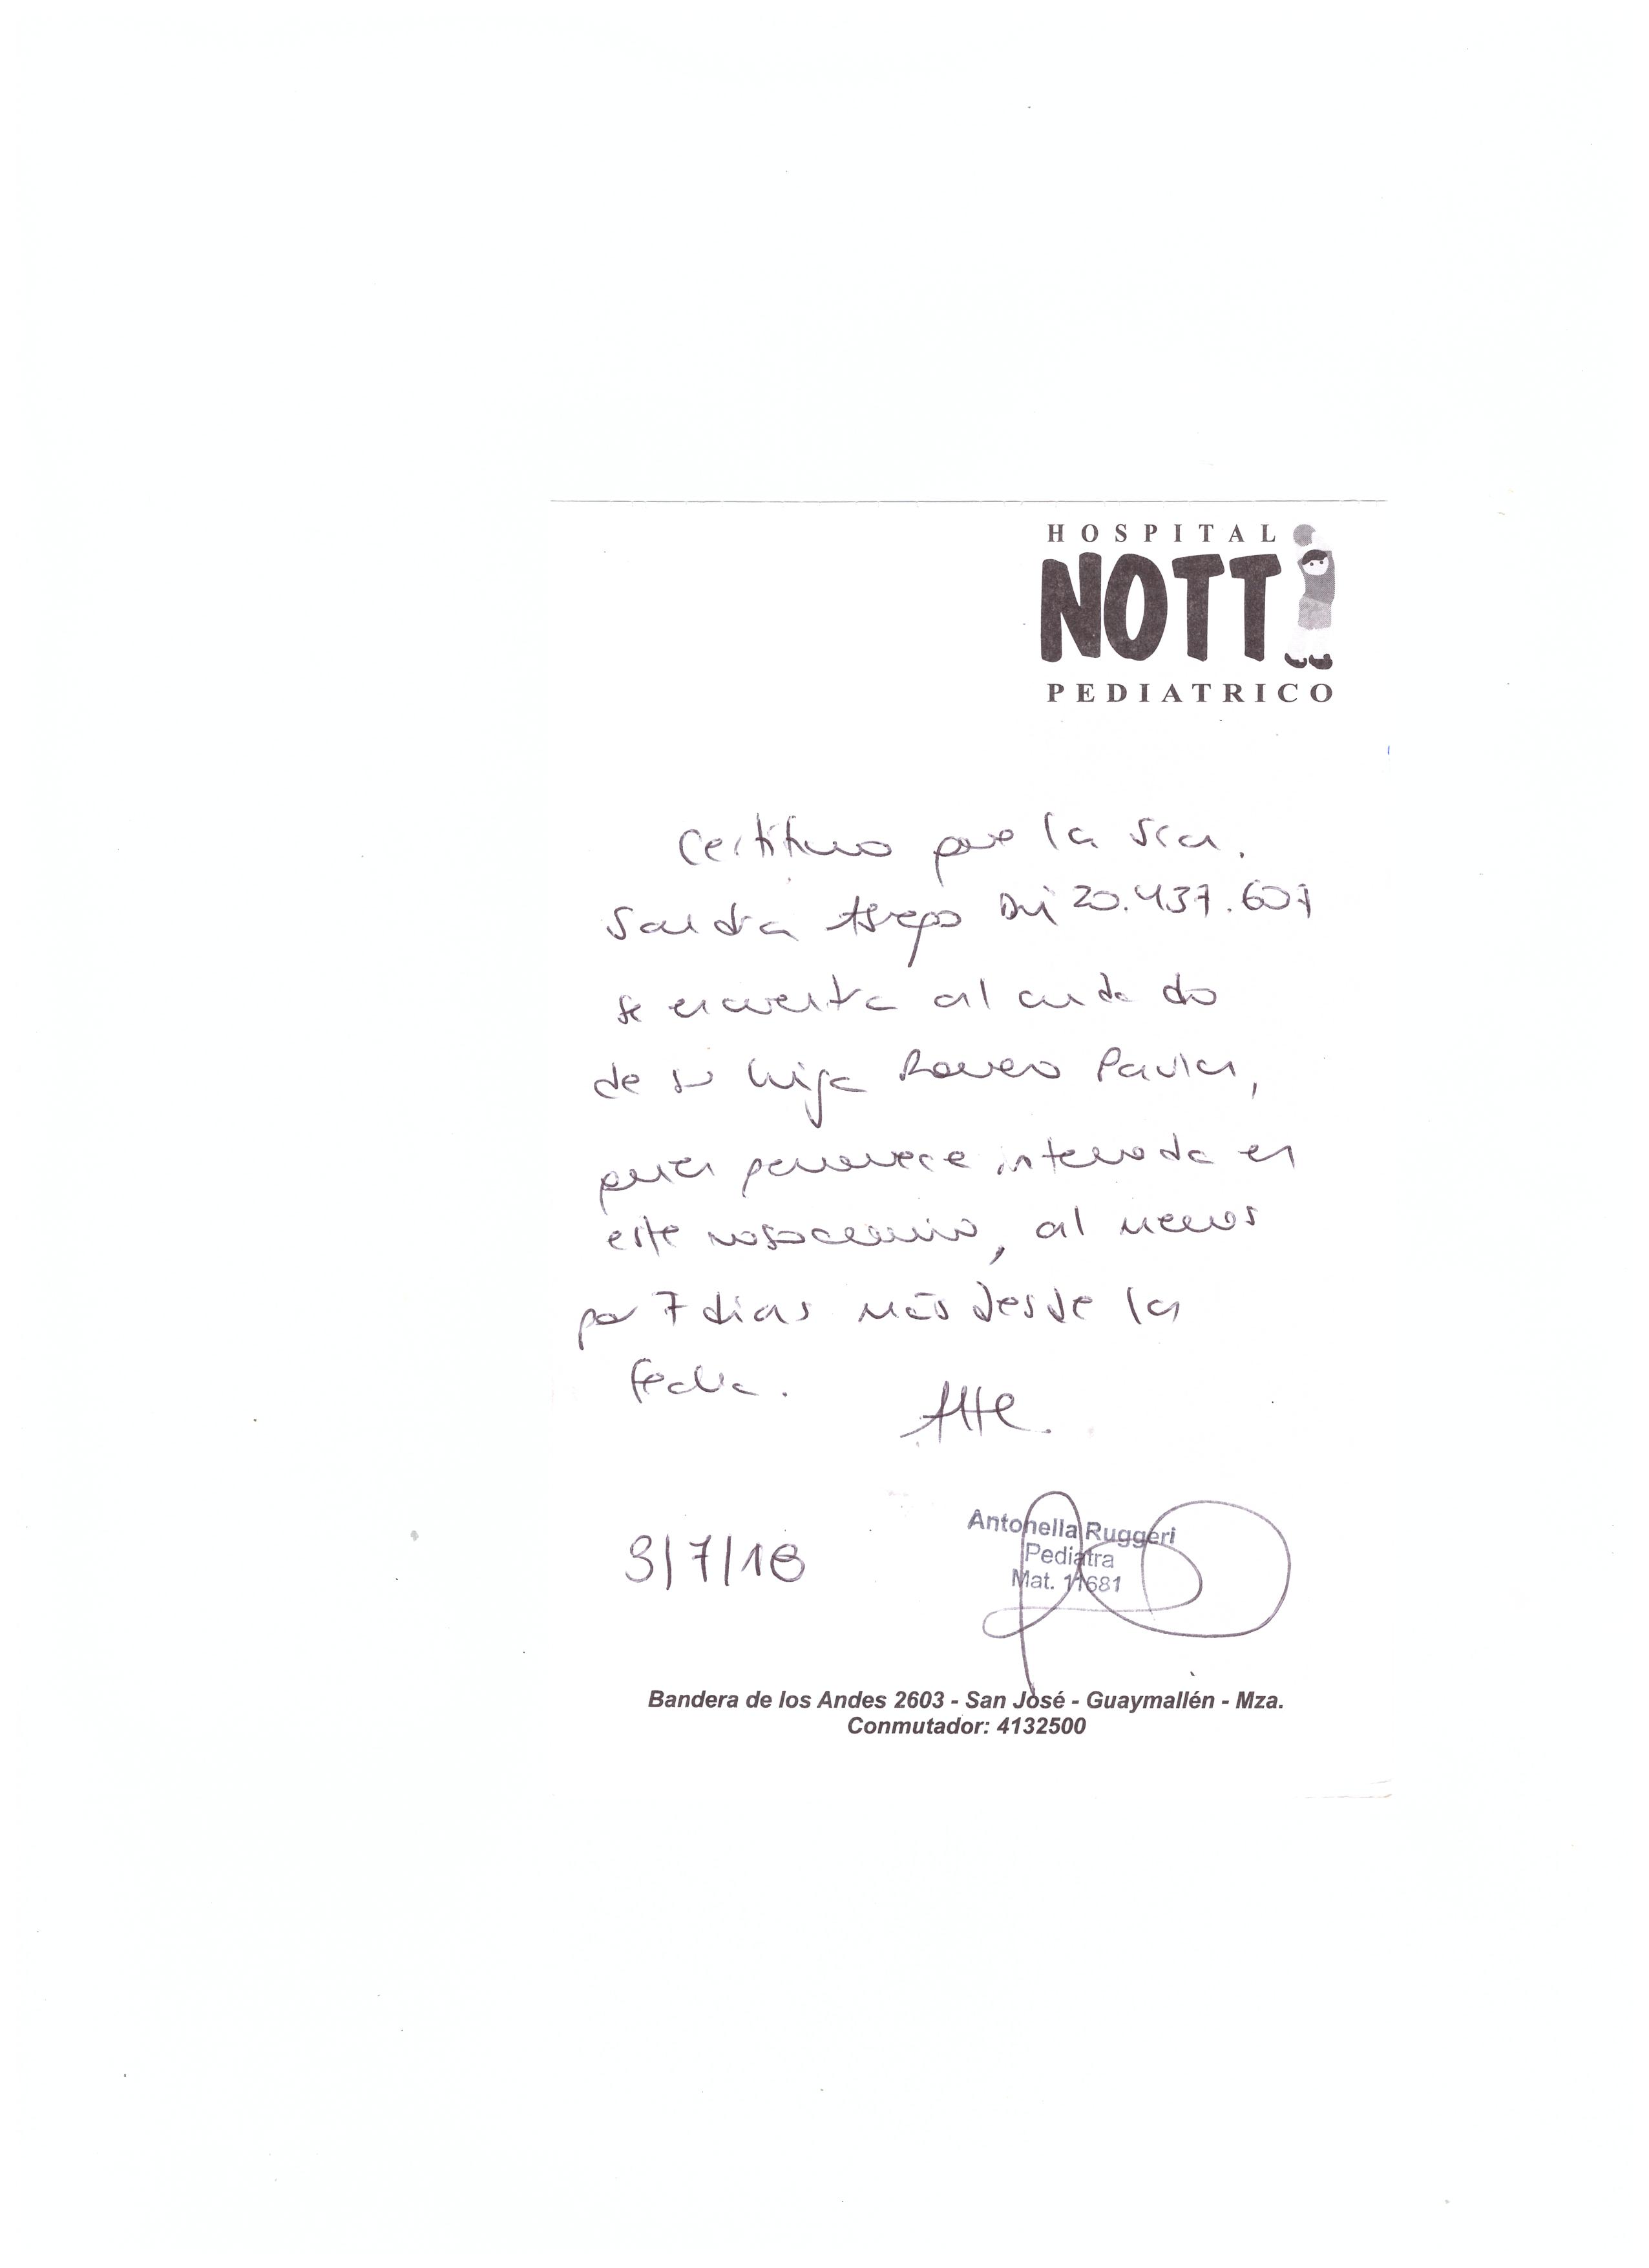 HOSPITAL
NOTTI
PEDIATRICO
Certifico que la Sra.
Sandra DNI 20.437.607
se encuentra al cuidado
de su hija Romero Paula,
quien permanece internada en
este nosocomio, al menos
por 7 dias más desde la
fecha.
Atte.
Antonella Ruggeri
Pediatra
Mat. 11681
9/7/18
Bandera de los Andes 2603 - San José - Guaymallén - Mza.
Conmutador: 4132500